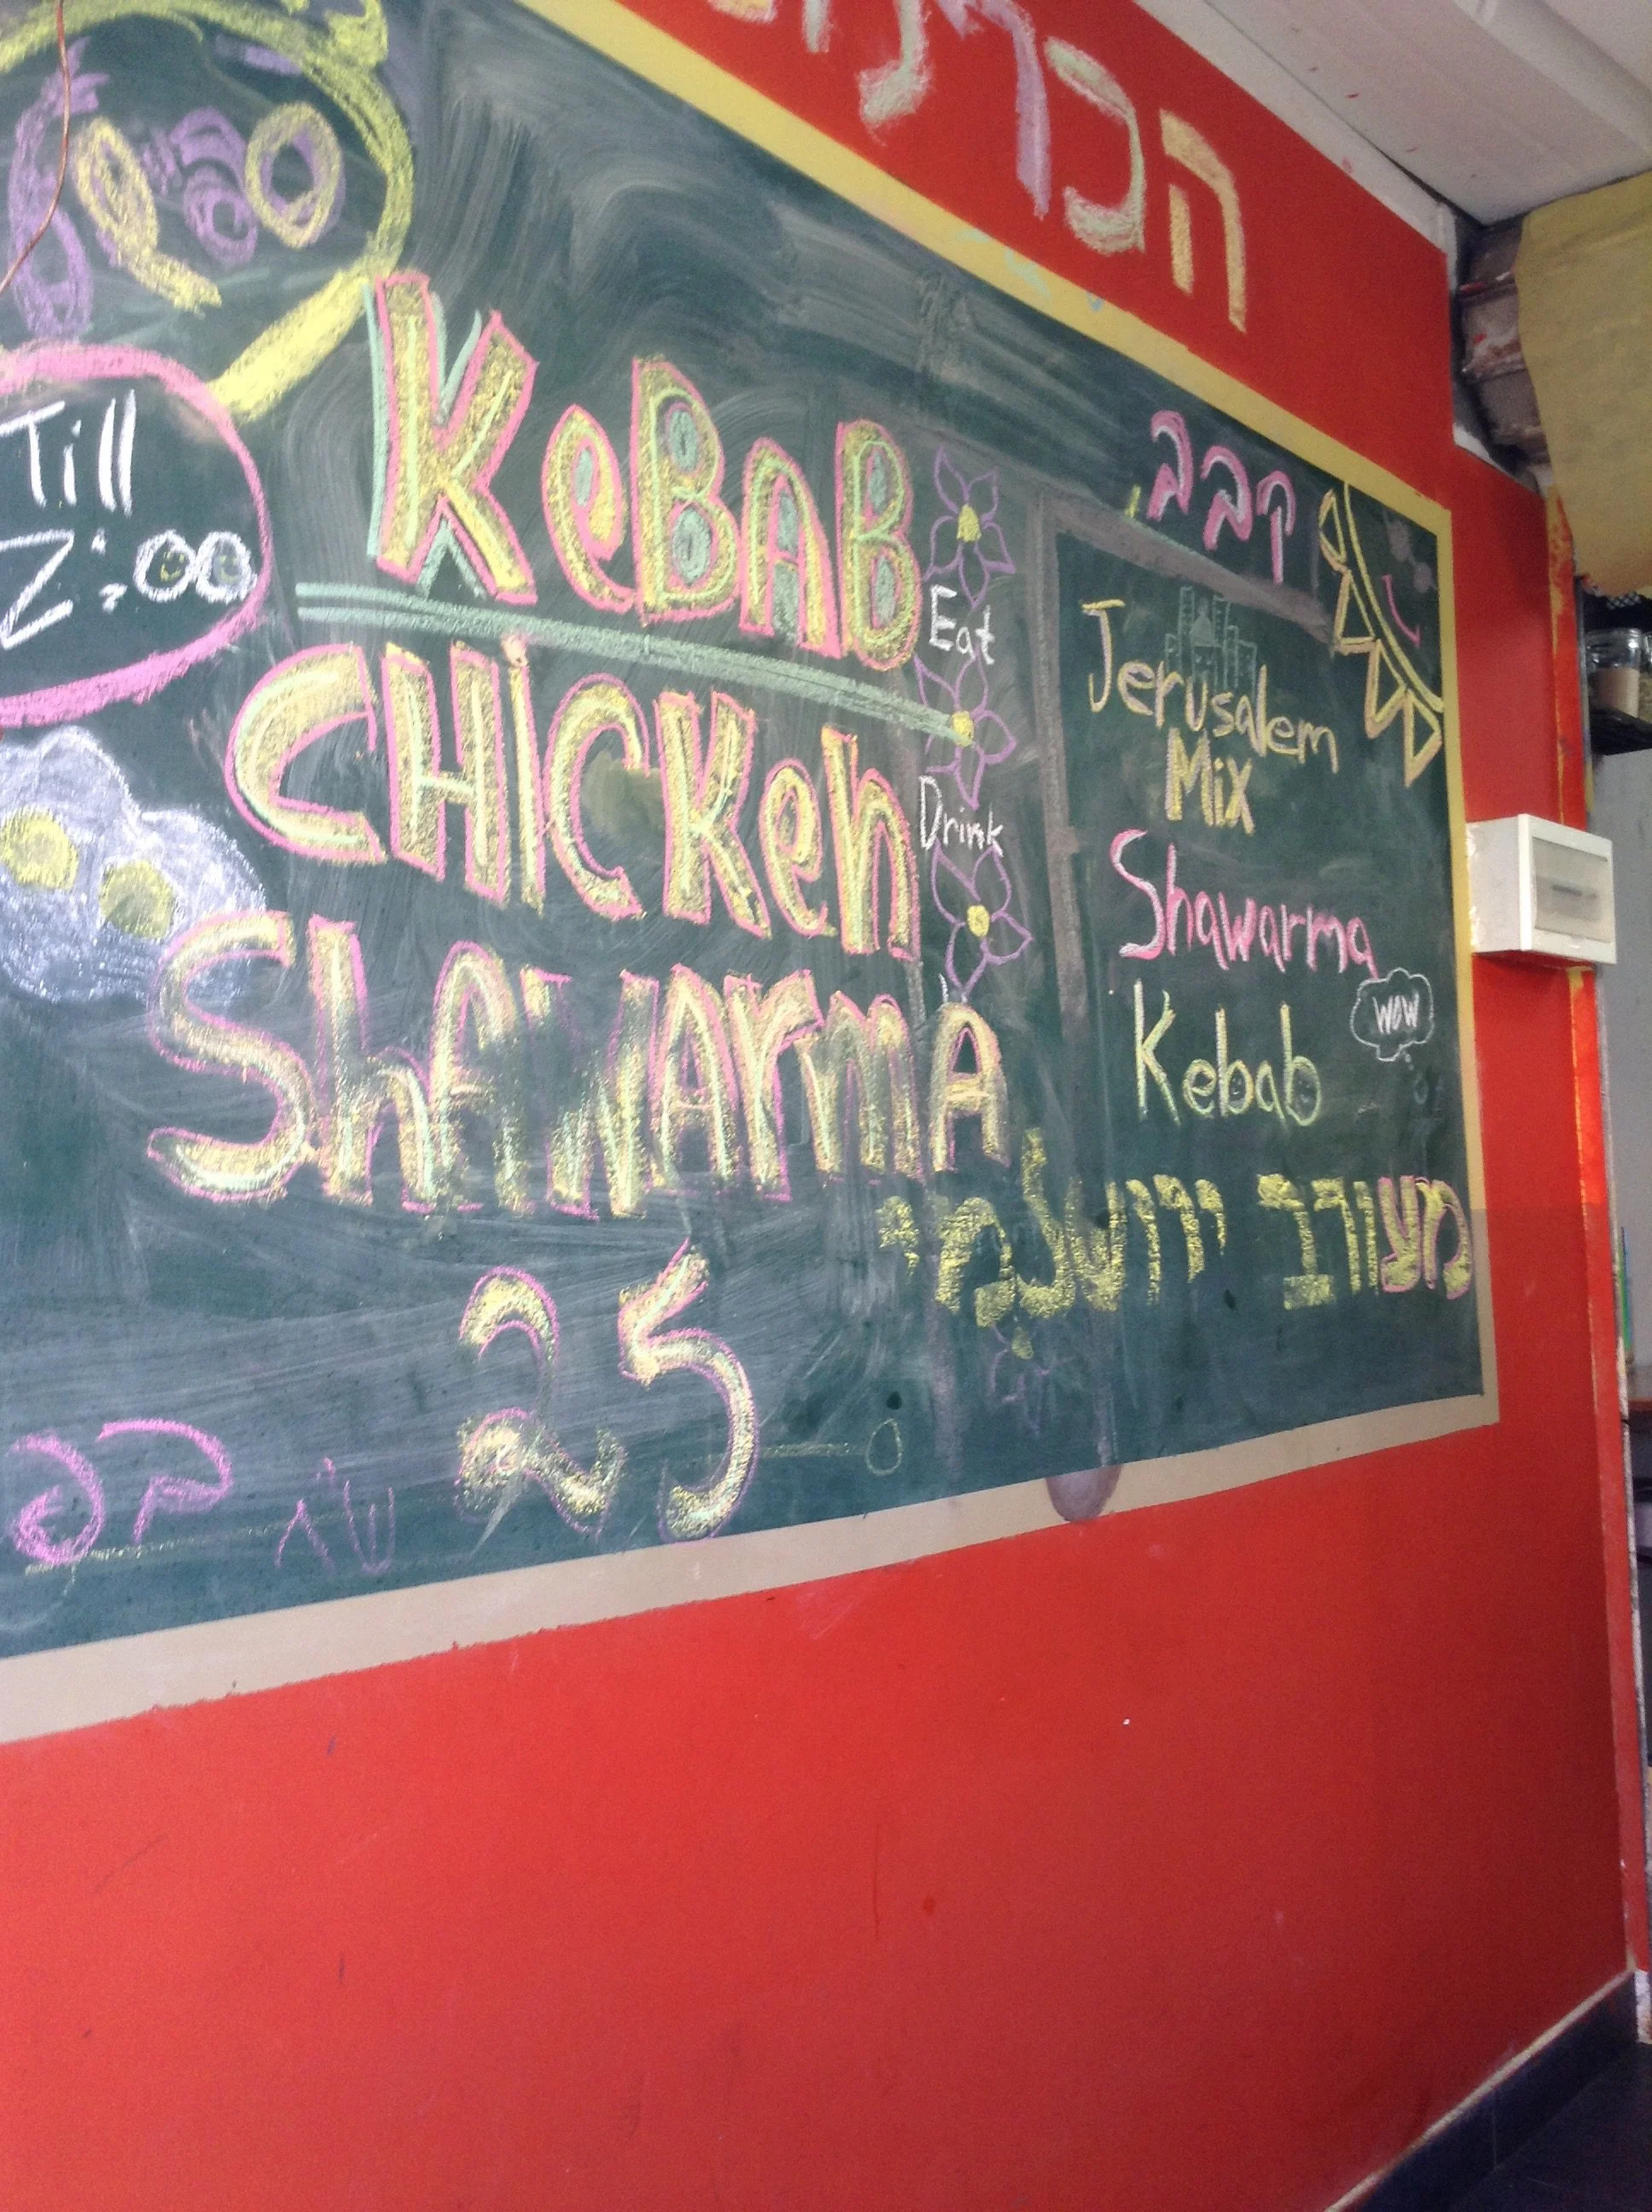 Till
2:00
KeBAB
CHiCKen
ShAWArmA
25
Eat
Drink
קבב
Jerusalem
Mix
Shawarma
Kebab
wow
מעורב ירושלמי